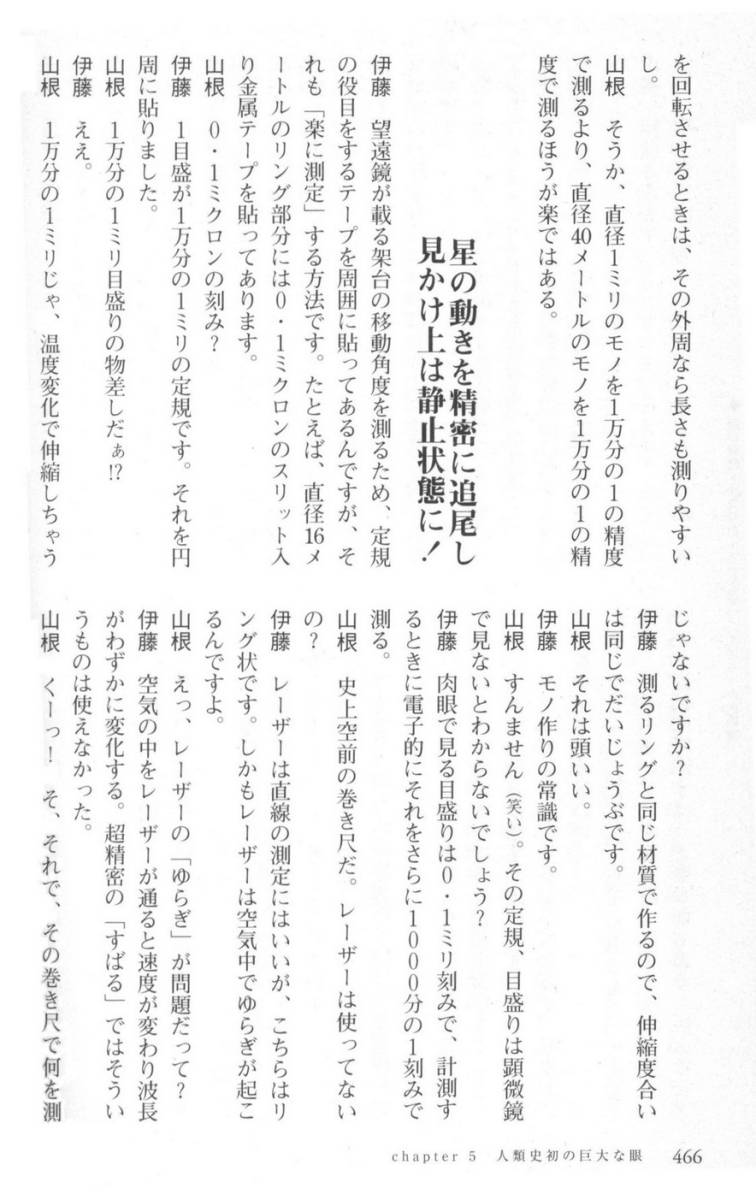 を回転させるときは、その外周なら長さも測りやすい
し。
山根　そうか、直径1ミリのモノを1万分の1の精度
で測るより、直径40メートルのモノを1万分の1の精
度で測るほうが楽ではある。
星の動きを精密に追尾し
見かけ上は静止状態に!
伊藤　望遠鏡が載る架台の移動角度を測るため、定規
の役目をするテープを周囲に貼ってあるんですが、そ
れも「楽に測定」する方法です。たとえば、直径16メ
ートルのリング部分には0・1ミクロンのスリット入
り金属テープを貼ってあります。
山根　0・1ミクロンの刻み?
伊藤　1目盛が1万分の1ミリの定規です。それを円
周に貼りました。
山根　1万分の1ミリ目盛りの物差しだぁ!?
伊藤　ええ。
山根　1万分の1ミリじゃ、温度変化で伸縮しちゃう
じゃないですか?
伊藤　測るリングと同じ材質で作るので、伸縮度合い
は同じでだいじょうぶです。
山根　それは頭いい。
伊藤　モノ作りの常識です。
山根　すんません(笑い)。その定規、目盛りは顕微鏡
で見ないとわからないでしょう?
伊藤　肉眼で見る目盛りは0・1ミリ刻みで、計測す
るときに電子的にそれをさらに1000分の1刻みで
測る。
山根　史上空前の巻き尺だ。レーザーは使ってない
の?
伊藤　レーザーは直線の測定にはいいが、こちらはリ
ング状です。しかもレーザーは空気中でゆらぎが起こ
るんですよ。
山根　えっ、レーザーの「ゆらぎ」が問題だって?
伊藤　空気の中をレーザーが通ると速度が変わり波長
がわずかに変化する。超精密の「すばる」ではそうい
うものは使えなかった。
山根　くーっ!　そ、それで、その巻き尺で何を測
chapter 5　人類史初の巨大な眼　466